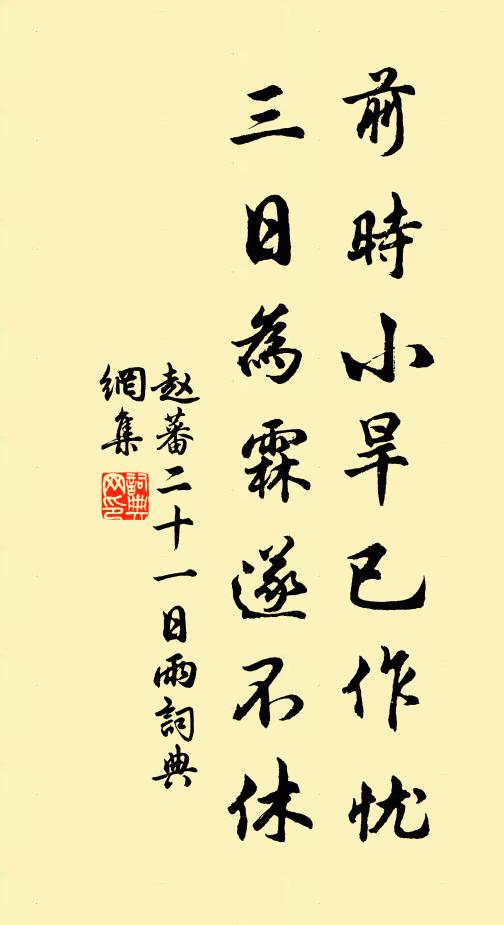 前時小旱已作忧
三日為霖遂不休
赵蕃二十一日雨詞典
網集
詞典
网印